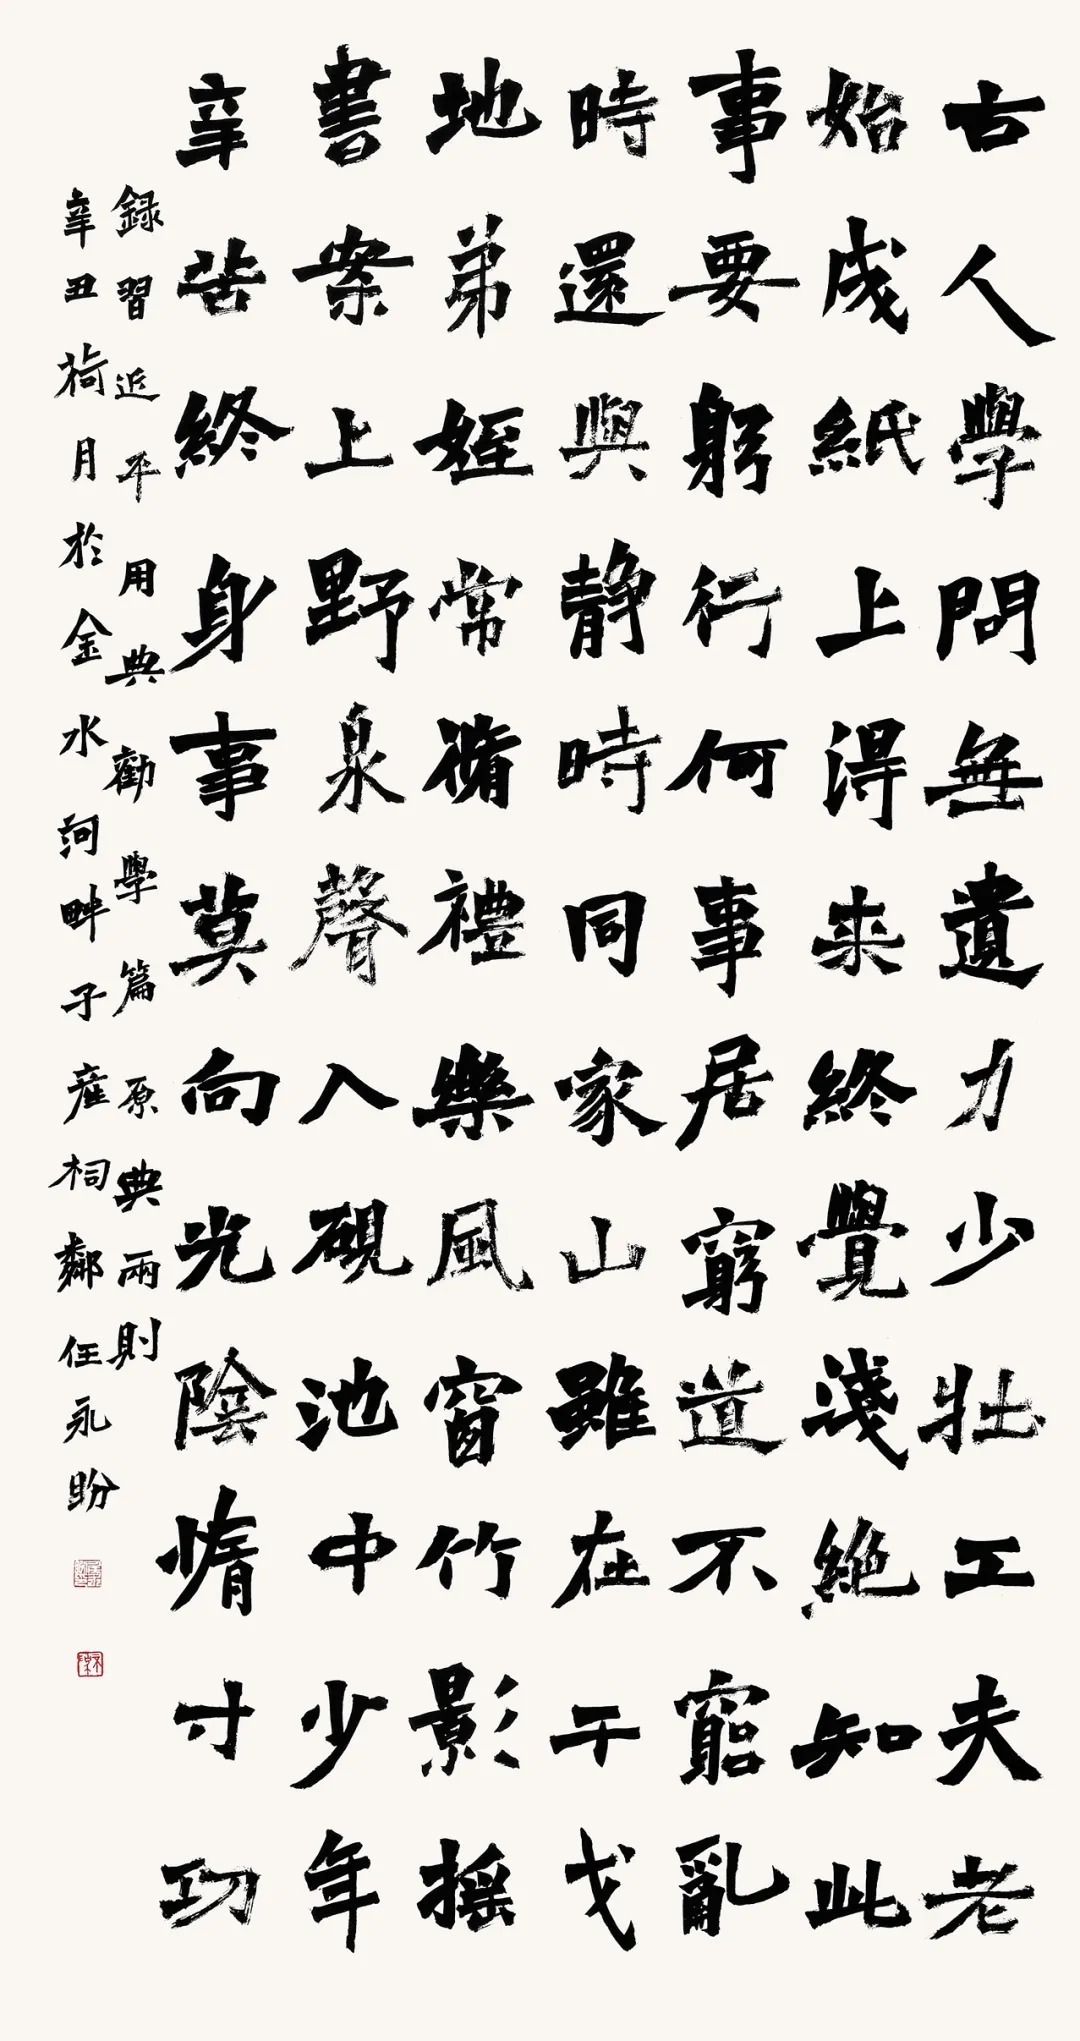 古人學問無遺力少壯工夫老
始成紙上得来終覺淺絶知此
事要躬行何事居窮道不窮亂
時還與靜時同家山雖在干戈
地弟姪常脩禮樂風窗竹影摇
書案上野泉聲入硯池中少年
辛苦終身事莫向光陰惰寸功
録習近平用典勸學篇原典兩則
辛丑荷月於金水河畔子産祠鄰任永盼